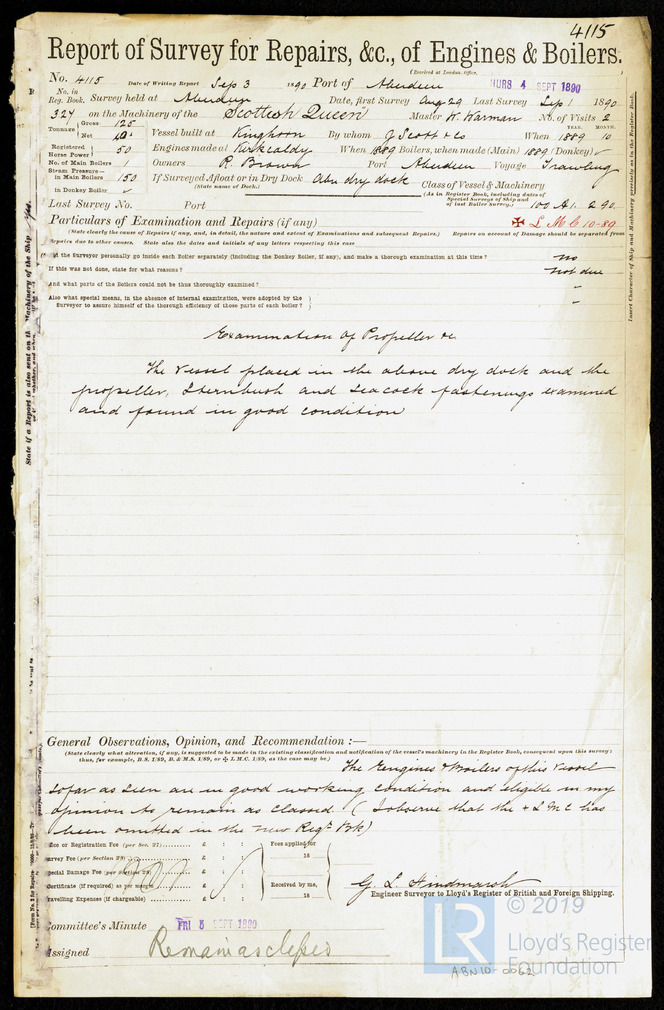 4115
Report of Survey for Repairs, &c., of Engines & Boilers.
(Received at London Office.
No. 4115 Date of Writing Report Sep 3 1890 Port of Aberdeen THURS 4 SEPT 1890
No. in Reg. Book. Survey held at Aberdeen Date, first Survey Aug 29 Last Survey Sep 1 1890
327 on the Machinery of the Scottish Queen Master W. Warman No. of Visits 2
Tonnage Gross 125 Net Vessel built at Kinghorn By whom J. Scott & Co When YEAR. 1889 MONTH. 10
Registered Horse Power 50 Engines made at Kirkcaldy When 1889 Boilers, when made (Main) 1889 (Donkey)
No. of Main Boilers 1 Owners R. Brown Port Aberdeen Voyage Trawling
Steam Pressure— in Main Boilers 150 If Surveyed Afloat or in Dry Dock Abn dry dock
(State name of Dock.)
in Donkey Boiler
Class of Vessel & Machinery
(As in Register Book, including dates of Special Surveys of Ship and of last Boiler Survey.)
Last Survey No. Port 100 A1. 2 90
Particulars of Examination and Repairs (if any) ✠ L M C 10-89
(State clearly the cause of Repairs if any, and, in detail, the nature and extent of Examinations and subsequent Repairs.) Repairs on account of Damage should be separated from
Repairs due to other causes. State also the dates and initials of any letters respecting this case
Did the Surveyor personally go inside each Boiler separately (including the Donkey Boiler, if any), and make a thorough examination at this time? no
If this was not done, state for what reasons? not due
And what parts of the Boilers could not be thus thoroughly examined? -
Also what special means, in the absence of internal examination, were adopted by the
Surveyor to assure himself of the thorough efficiency of those parts of each boiler? -
Examination of Propeller &c
The vessel placed in the above dry dock and the
propeller, Sternbush and Seacock fastenings examined
and found in good condition
General Observations, Opinion, and Recommendation :—
(State clearly what alteration, if any, is suggested to be made in the existing classification and notification of the vessel's machinery in the Register Book, consequent upon this survey:
thus, for example, B.S. 1/89, B. & M.S. 1/89, or ✠ L.M.C. 1/89, as the case may be.)
The Engines & Boilers of this Vessel
so far as seen are in good working condition and eligible in my
opinion to remain as classed. (I observe that the + L M C has
been omitted in the new Regr. Bk)
Office or Registration Fee (per Sec. 27) £ : : Fees applied for
Survey Fee (per Section 28) £ : : 18
Special Damage Fee (per Section 28) £ : :
Certificate (if required) as per margin £ : : Received by me,
Travelling Expenses (if chargeable) £ : : 18
G. L. Hindmarsh
Engineer Surveyor to Lloyd's Register of British and Foreign Shipping.
Committee's Minute FRI 5 SEPT 1890
Assigned Remain as classed
LR
© 2019
Lloyd's Register
Foundation
ABN10-0062
Insert Character of Ship and Machinery precisely as in the Register Book.
State if a Report is also sent on the Machinery of the Ship